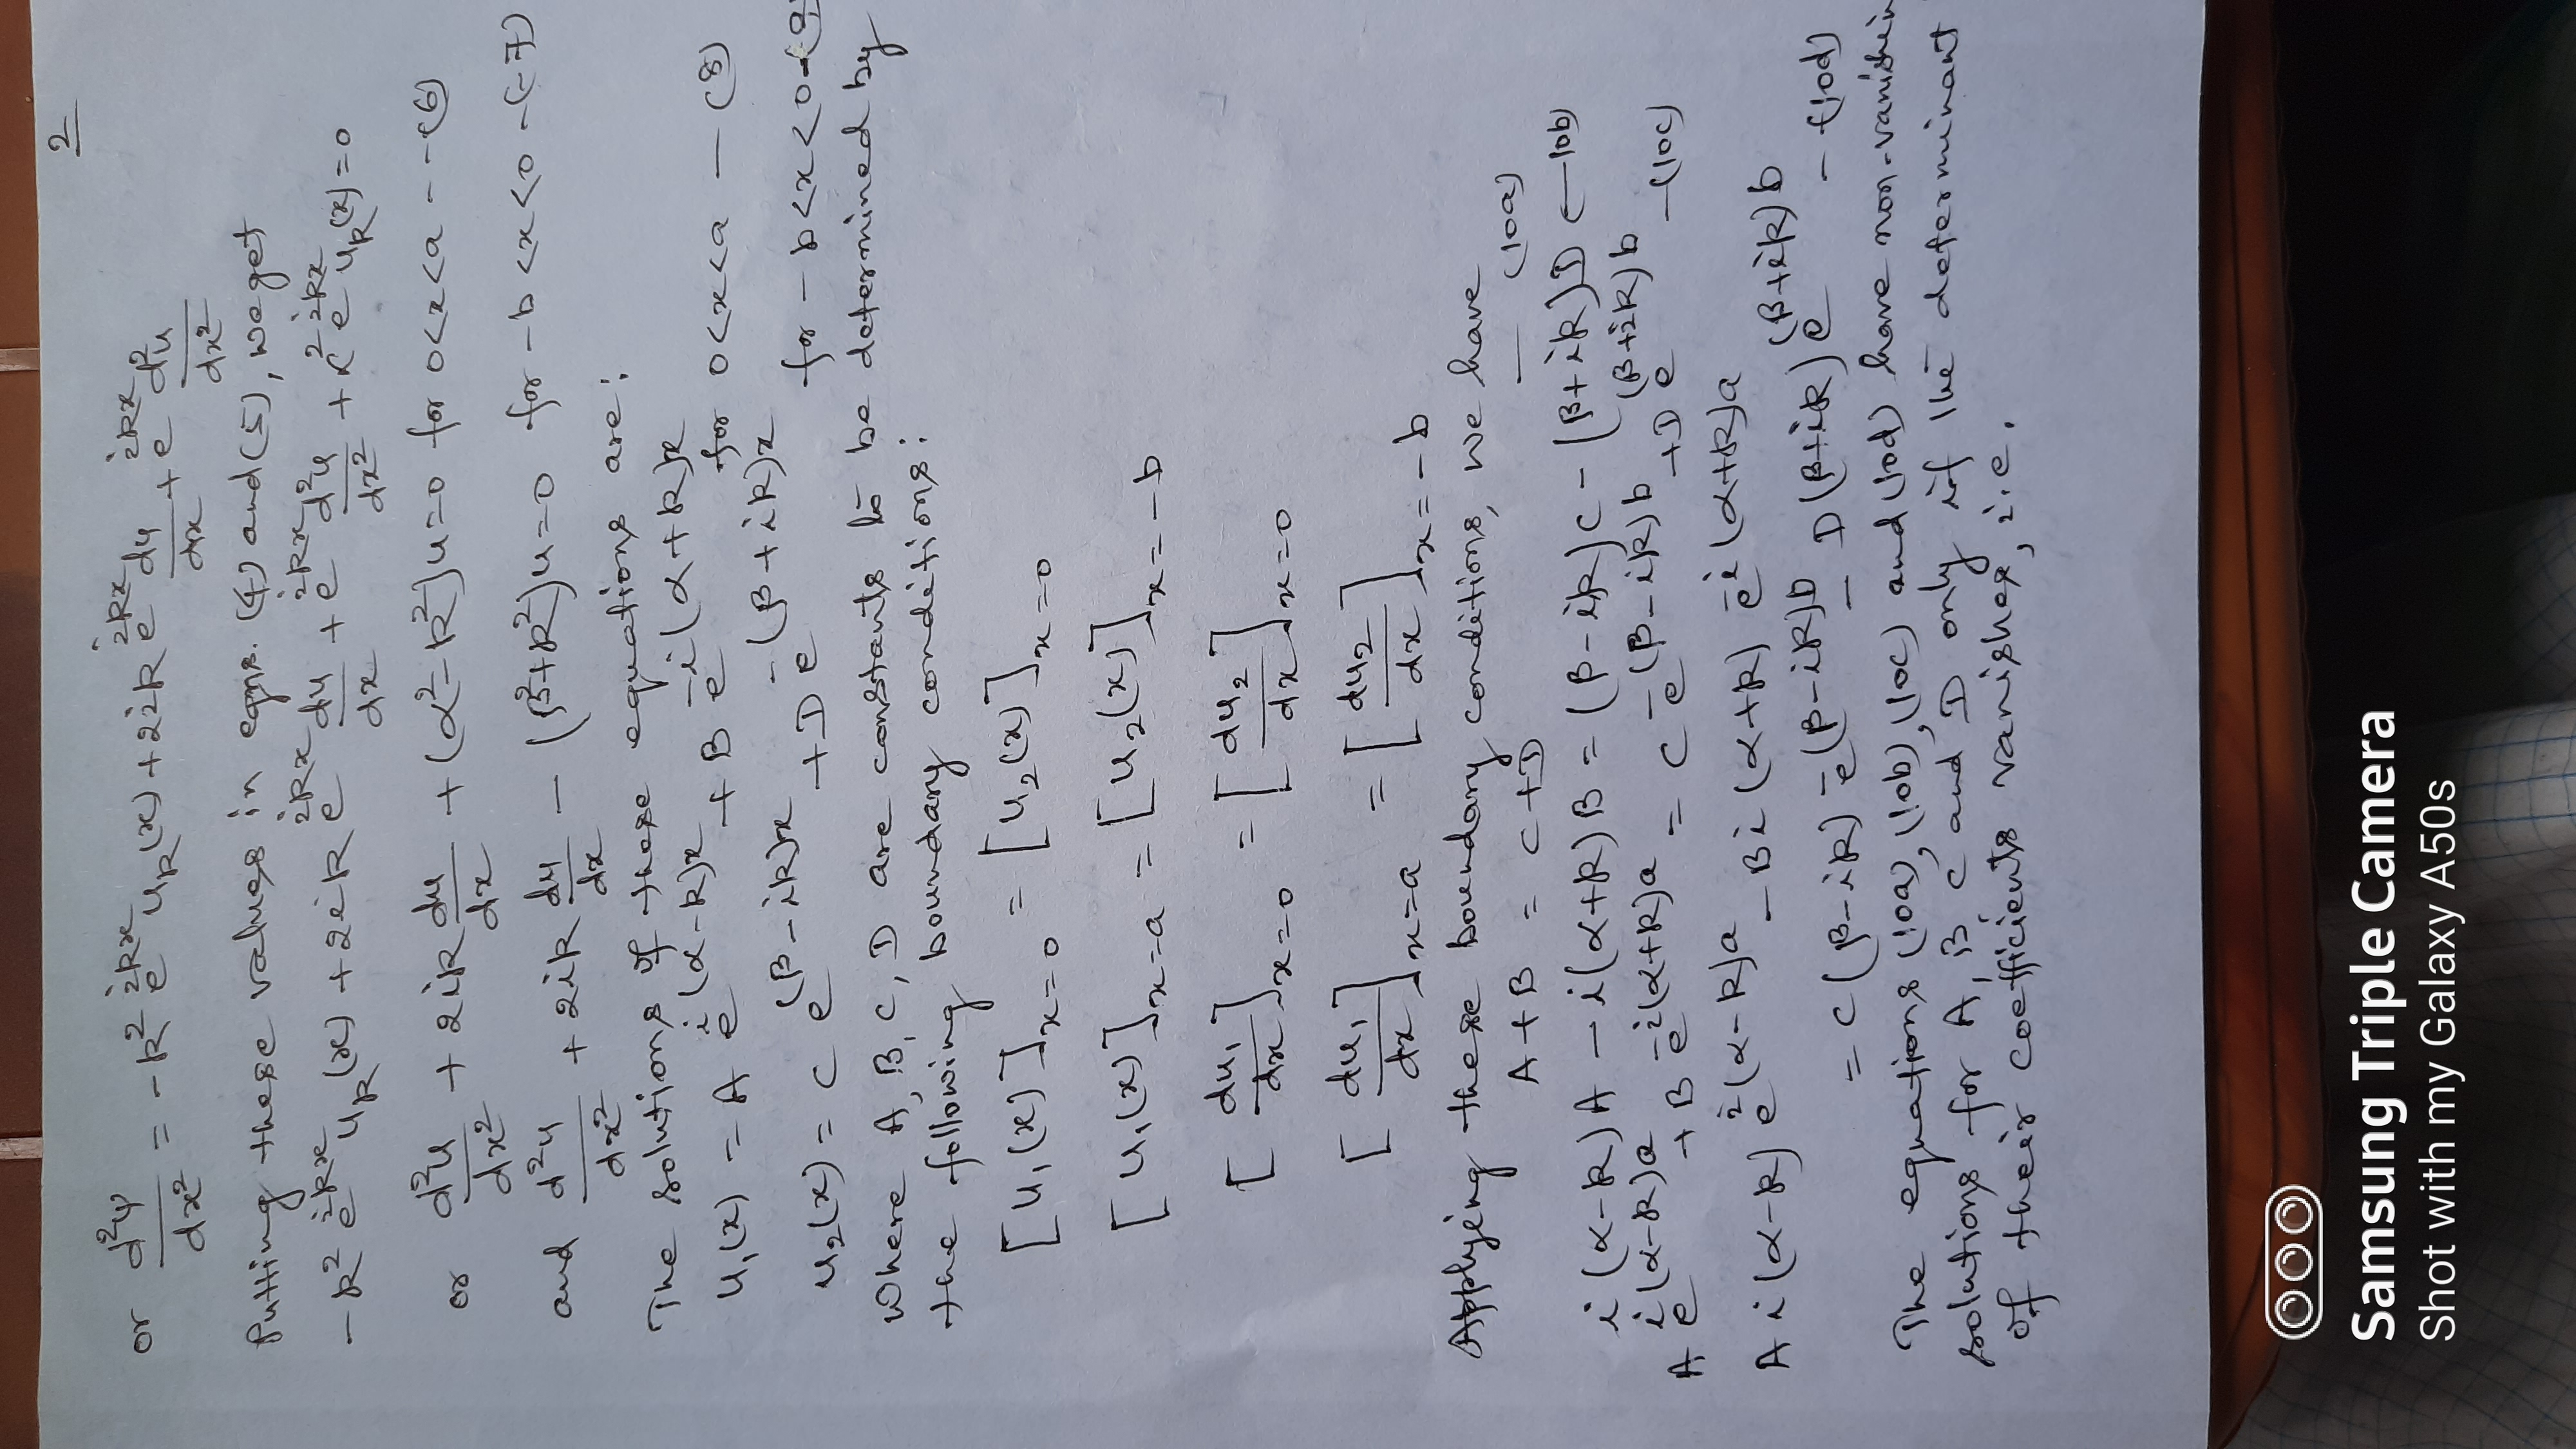 2
or d²ψ/dx² = -k² e^ikx u_k(x) + 2ik e^ikx du/dx + e^ikx d²u/dx²
Putting these values in eqns. (4) and (5), we get
-k² e^ikx u_k(x) + 2ik e^ikx du/dx + e^ikx d²u/dx² + α² e^ikx u_k(x) = 0
or d²u/dx² + 2ik du/dx + (α²-k²)u=0 for 0<x<a --(6)
and d²u/dx² + 2ik du/dx - (β²+k²)u=0 for -b<x<0 -(7)
The solutions of these equations are:
u₁(x) = A e^i(α-k)x + B e^-i(α+k)x for 0<x<a -(8)
u₂(x) = C e^(β-ik)x + D e^-(β+ik)x for -b<x<0-(9)
Where A, B, C, D are constants to be determined by
the following boundary conditions:
[u₁(x)]x=0 = [u₂(x)]x=0
[u₁(x)]x=a = [u₂(x)]x=-b
[du₁/dx]x=0 = [du₂/dx]x=0
[du₁/dx]x=a = [du₂/dx]x=-b
Applying these boundary conditions, we have
A+B = C+D — (10a)
i(α-k)A - i(α+k)B = (β-ik)C - (β+ik)D (-10b)
A e^i(α-k)a + B e^-i(α+k)a = C e^-(β-ik)b + D e^(β+ik)b -(10c)
A i(α-k) e^i(α-k)a - B i(α+k) e^-i(α+k)a
= C(β-ik) e^-(β-ik)b - D(β+ik) e^(β+ik)b -(10d)
The equations (10a), (10b), (10c) and (10d) have non-vanishin
solutions for A, B C and D only if the determinant
of their coefficients vanishes, i.e.
Samsung Triple Camera
Shot with my Galaxy A50s